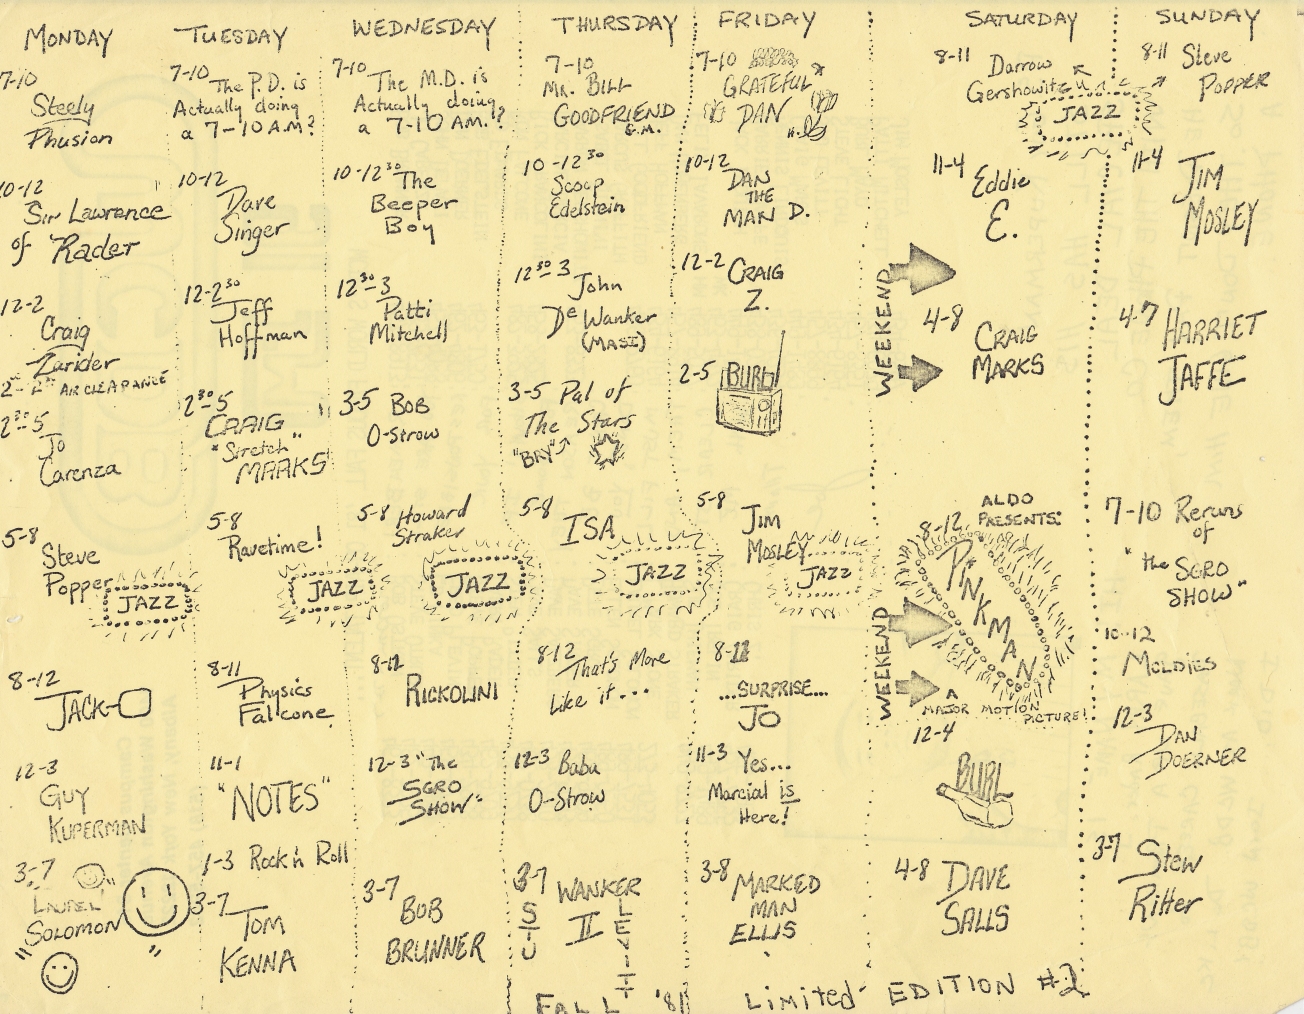 MONDAY
7-10
Steely
Phusion
10-12
Sir Lawrence
of Rader
12-2
Craig
Zarider
AIR CLEARANCE
2³⁰-5
Jo
Carenza
5-8
Steve
Popper
JAZZ
8-12
JACK-O
12-3
GUY
KUPERMAN
3-7
LAUREL
SOLOMON
TUESDAY
7-10 The P.D. is
Actually doing
a 7-10 A.M?
10-12
Dave
Singer
12-2³⁰
Jeff
Hoffman
2³⁰-5
CRAIG
"Stretch"
MARKS
5-8
Ravetime!
JAZZ
8-11
Physics
Falcone
11-1
"NOTES"
1-3 Rock'n Roll
3-7
TOM
KENNA
WEDNESDAY
7-10 The M.D. is
Actually doing
a 7-10 AM.?
10-12³⁰ The
Beeper
Boy
12³⁰-3
Patti
Mitchell
3-5 BOB
O-Strow
5-8 Howard
Straker
JAZZ
8-12
RICKOLINI
12-3 "The
SGRO
SHOW"
3-7
BOB
BRUNNER
THURSDAY
7-10
MR. BILL
GOODFRIEND
G.M.
10-12³⁰
Scoop
Edelstein
12³⁰-3
John
De Wanker
(MASI)
3-5 Pal of
The Stars
"BRY"
5-8
ISA
JAZZ
8-12
That's More
Like it...
12-3 Baba
O-Strow
3-7 WANKER
II
STU
LEVITT
FRIDAY
7-10
GRATEFUL
DAN
10-12
DAN
THE
MAN D.
12-2 CRAIG
Z.
2-5 BURL
5-8
JIM
MOSLEY
JAZZ
8-11
...SURPRISE...
JO
11-3 Yes...
Marcial is
Here!
3-8 MARKED
MAN
ELLIS
WEEKEND
WEEKEND
SATURDAY
8-11
Darrow
Gershowitz
JAZZ
11-4
Eddie
E.
4-8
CRAIG
MARKS
ALDO
PRESENTS:
8-12
PINKMAN
A
MAJOR MOTION
PICTURE!
12-4
BURL
4-8 DAVE
SALLS
SUNDAY
8-11 Steve
POPPER
11-4
JIM
MOSLEY
4-7 HARRIET
JAFFE
7-10 Reruns
of
"the SGRO
SHOW"
10-12
MOLDIES
12-3
DAN
DOERNER
3-7 Stew
Ritter
FALL '81 Limited EDITION #2